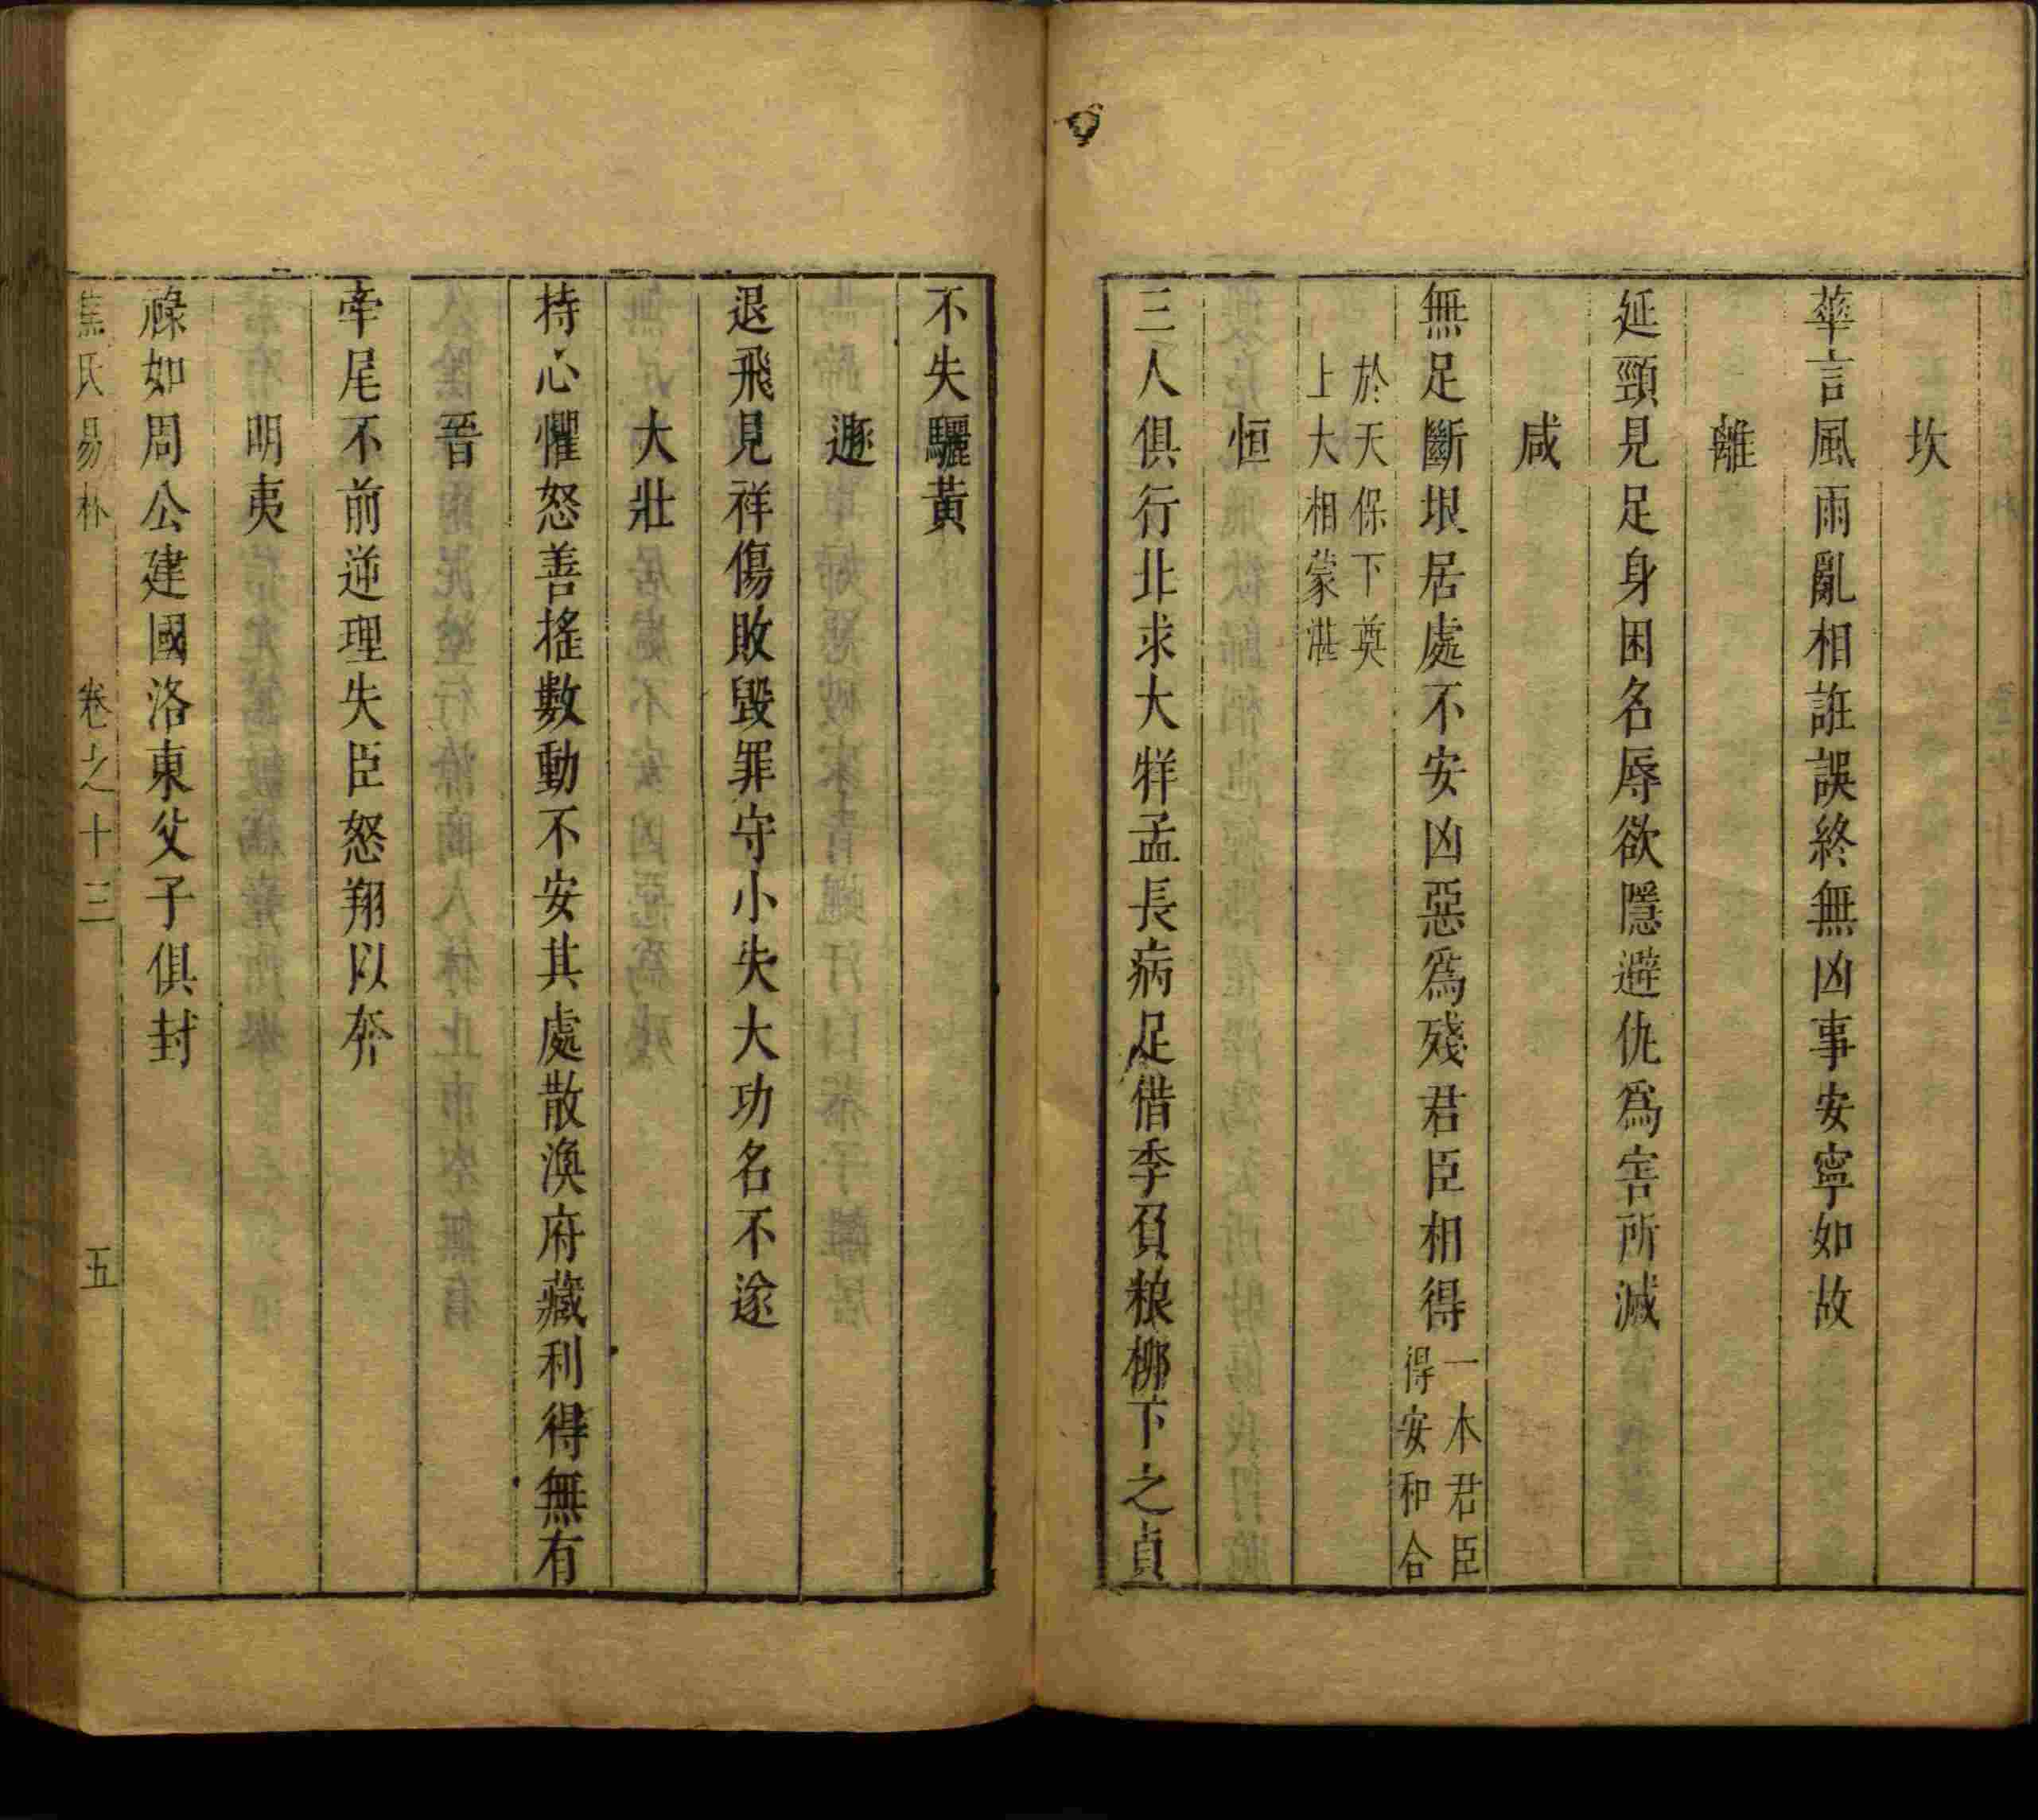 坎
華言風雨亂相誑誤終無凶事安寧如故
離
延頸見足身困名辱欲隱避仇爲害所滅
咸
無足斷垠居處不安凶惡爲殘君臣相得一木君臣得安和合
於天保下奠上大相蒙湛
恒
三人俱行北求大牂孟長病足倩季負粮柳下之貞
不失驪黃
遯
退飛見祥傷敗毀罪守小失大功名不遂
大壯
持心懼怒善搖數動不安其處散渙府藏利得無有
晉
牽尾不前逆理失臣怒翔以奔
明夷
祿如周公建國洛東父子俱封
焦氏易林 卷之十三 五